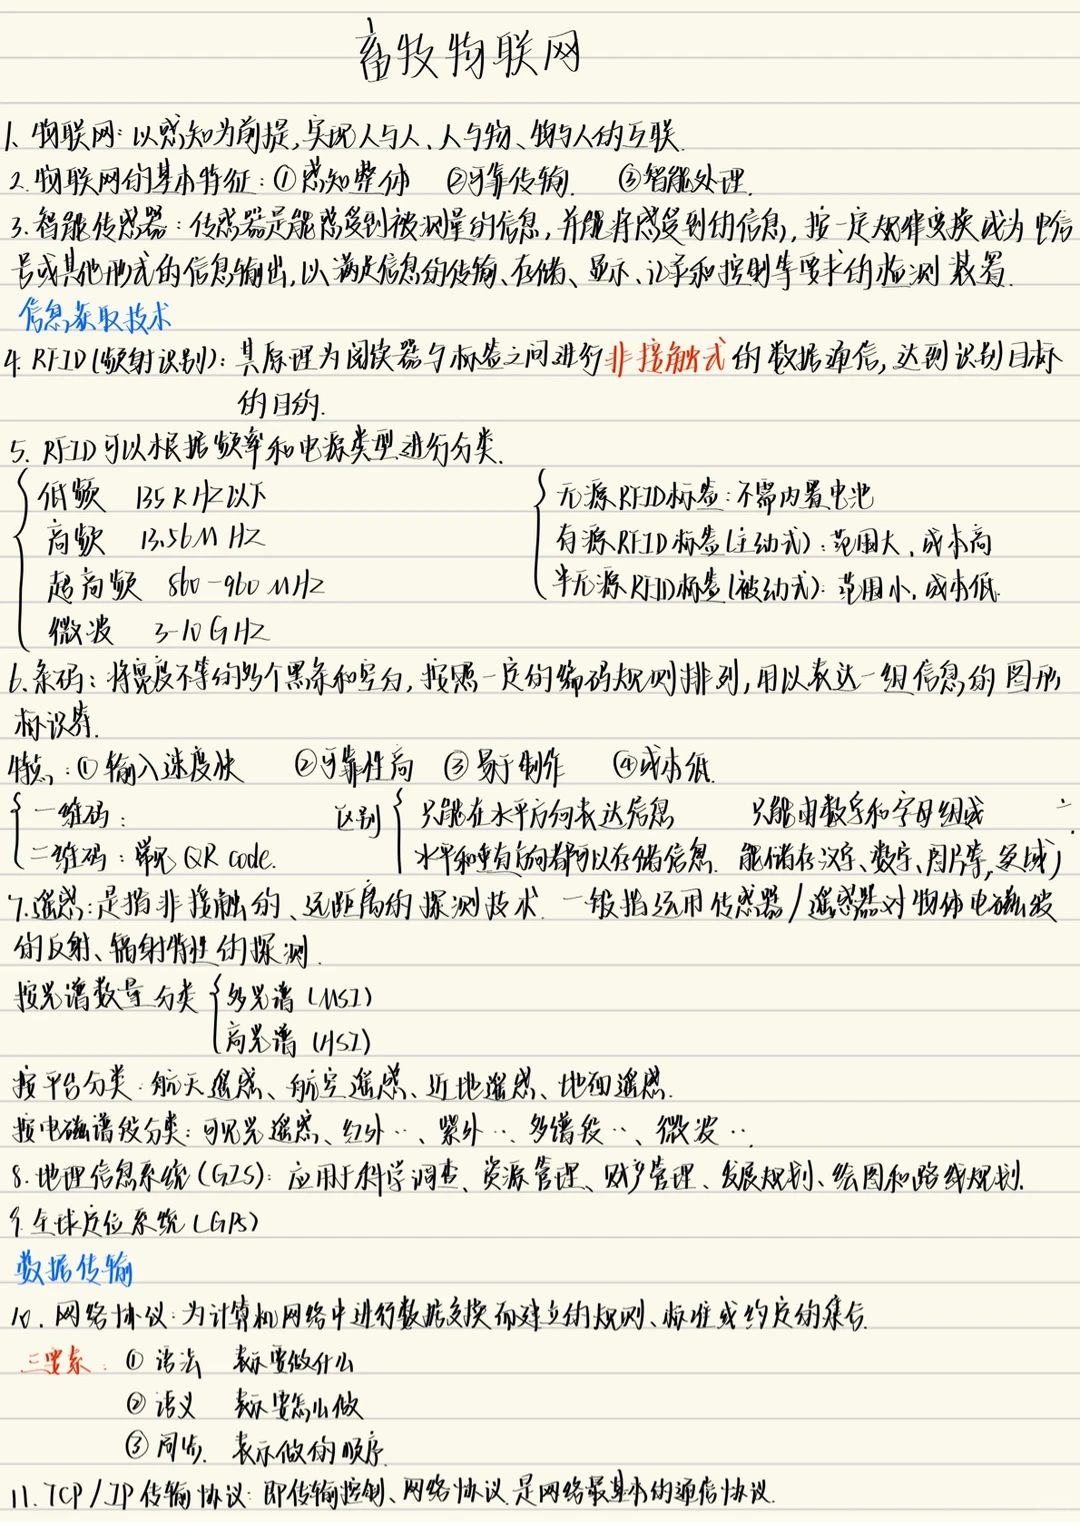 畜牧物联网
1. 物联网：以感知为前提，实现人与人、人与物、物与人的互联.
2. 物联网的基本特征：①感知整体 ②可靠传输. ③智能处理.
3. 智能传感器：传感器是能感受到被测量的信息，并能将感受到的信息，按一定规律变换成为电信
号或其他形式的信息输出，以满足信息的传输、存储、显示、记录和控制等要求的检测装置.
信息获取技术
4. RFID(频射识别)：其原理为阅读器与标签之间进行非接触式的数据通信，达到识别目标
的目的.
5. RFID可以根据频率和电源类型进行分类.
低频 135KHZ以下 无源RFID标签：不需内置电池
高频 13.56MHZ 有源RFID标签(主动式)：范围大，成本高
超高频 860-960MHZ 半无源RFID标签(被动式)：范围小，成本低.
微波 3-10GHZ
6. 条码：将宽度不等的多个黑条和空白，按照一定的编码规则排列，用以表达一组信息的图形
标识符.
特点：①输入速度快 ②可靠性高 ③易于制作 ④成本低.
一维码： 区别 只能在水平方向表达信息 只能由数字和字母组成
二维码：常见QR code. 水平和垂直方向都可以存储信息. 能储存汉字、数字、图片等，
7. 遥感：是指非接触的、远距离的探测技术. 一般指运用传感器/遥感器对物体电磁波
的反射、辐射特性的探测.
按光谱数量分类 多光谱(MSI)
高光谱(HSI)
按平台分类：航天遥感、航空遥感、近地遥感、地面遥感.
按电磁谱段分类：可见光遥感、红外··、紫外··、多谱段··、微波··.
8. 地理信息系统(GIS)：应用于科学调查、资源管理、财产管理、发展规划、绘图和路线规划.
9. 全球定位系统(GPS)
数据传输
10. 网络协议：为计算机网络中进行数据交换而建立的规则、标准或约定的集合.
三要素：①语法 表示要做什么
②语义 表示要怎么做
③同步. 表示做的顺序.
11. TCP/IP传输协议：即传输控制、网络协议.是网络最基本的通信协议.